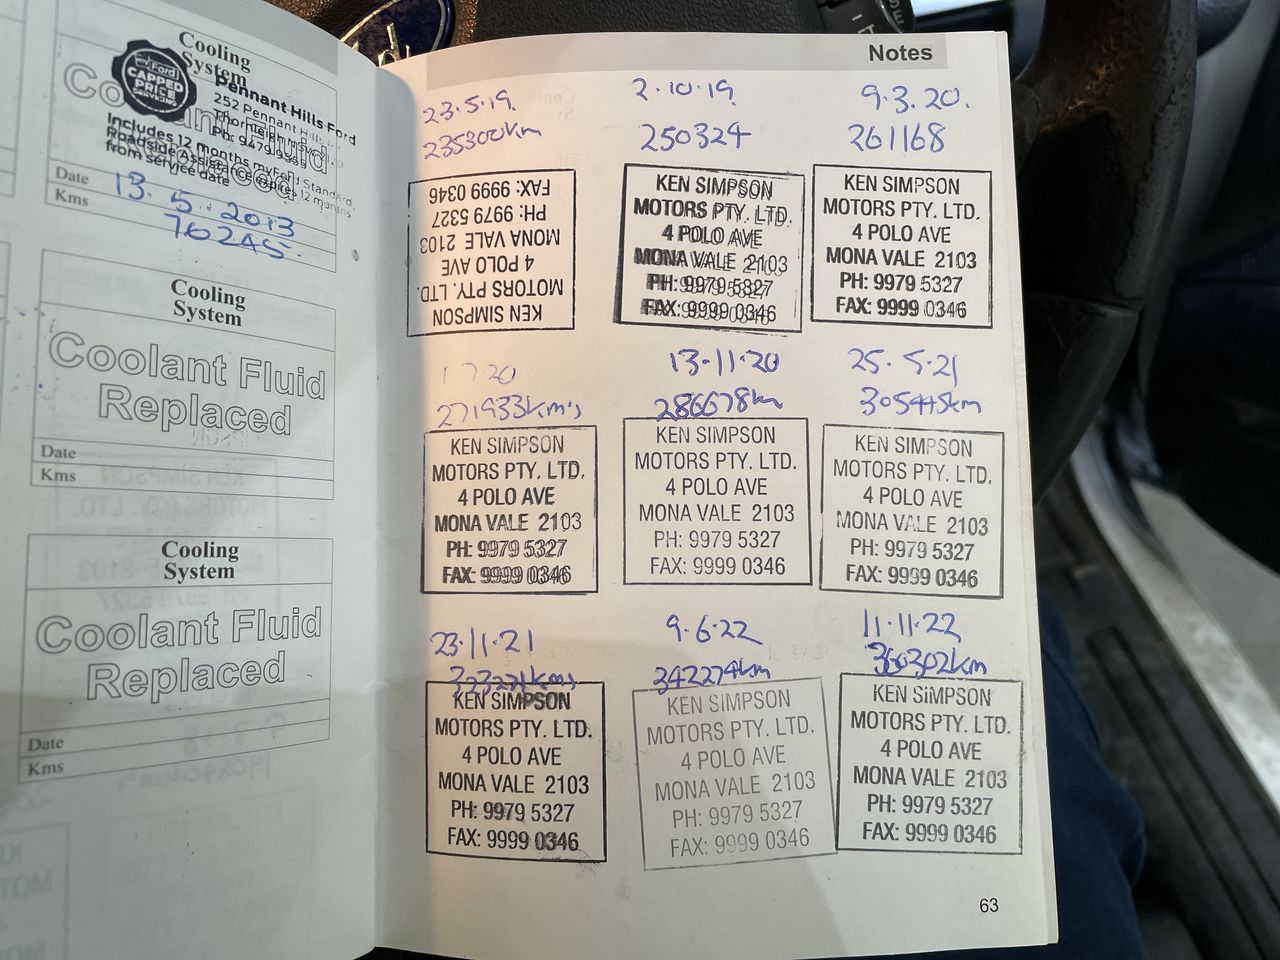 Cooling
System
my Ford
CAPPED
PRICE
SERVICING
Pennant Hills Ford
252 Pennant Hills
Thornleigh
Ph: 9479 9999
Includes 12 months myFord Standard
Roadside Assistance. Expires 12 months
from service date
Date 13.5.2013
Kms 76245
Cooling
System
Coolant Fluid
Replaced
Date
Kms
Cooling
System
Coolant Fluid
Replaced
Date
Kms
Notes
23.5.19.
235300km
KEN SIMPSON
MOTORS PTY. LTD.
4 POLO AVE
MONA VALE 2103
PH: 9979 5327
FAX: 9999 0346
2.10.19.
250324
KEN SIMPSON
MOTORS PTY. LTD.
4 POLO AVE
MONA VALE 2103
PH: 9979 5327
FAX: 9999 0346
9.3.20.
261168
KEN SIMPSON
MOTORS PTY. LTD.
4 POLO AVE
MONA VALE 2103
PH: 9979 5327
FAX: 9999 0346
1.7.20
271933km's
KEN SIMPSON
MOTORS PTY. LTD.
4 POLO AVE
MONA VALE 2103
PH: 9979 5327
FAX: 9999 0346
13.11.20
286678km
KEN SIMPSON
MOTORS PTY. LTD.
4 POLO AVE
MONA VALE 2103
PH: 9979 5327
FAX: 9999 0346
25.5.21
305445km
KEN SIMPSON
MOTORS PTY. LTD.
4 POLO AVE
MONA VALE 2103
PH: 9979 5327
FAX: 9999 0346
23.11.21
KEN SIMPSON
MOTORS PTY. LTD.
4 POLO AVE
MONA VALE 2103
PH: 9979 5327
FAX: 9999 0346
9.6.22
342274km
KEN SIMPSON
MOTORS PTY. LTD.
4 POLO AVE
MONA VALE 2103
PH: 9979 5327
FAX: 9999 0346
11.11.22
360302km
KEN SIMPSON
MOTORS PTY. LTD.
4 POLO AVE
MONA VALE 2103
PH: 9979 5327
FAX: 9999 0346
63